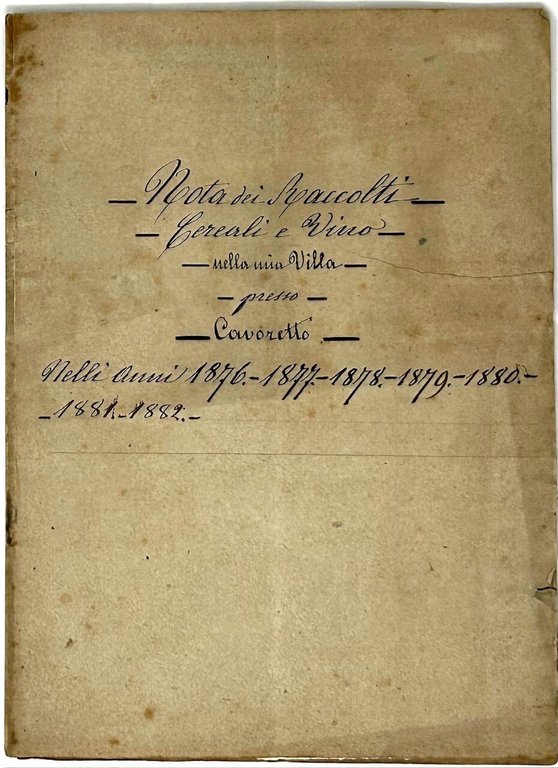 — Nota dei Raccolti —
— Cereali e Vino —
— nella mia Villa —
— presso —
— Cavoretto —
Nelli Anni 1876.-1877.-1878.-1879.-1880.-
-1881.-1882.-